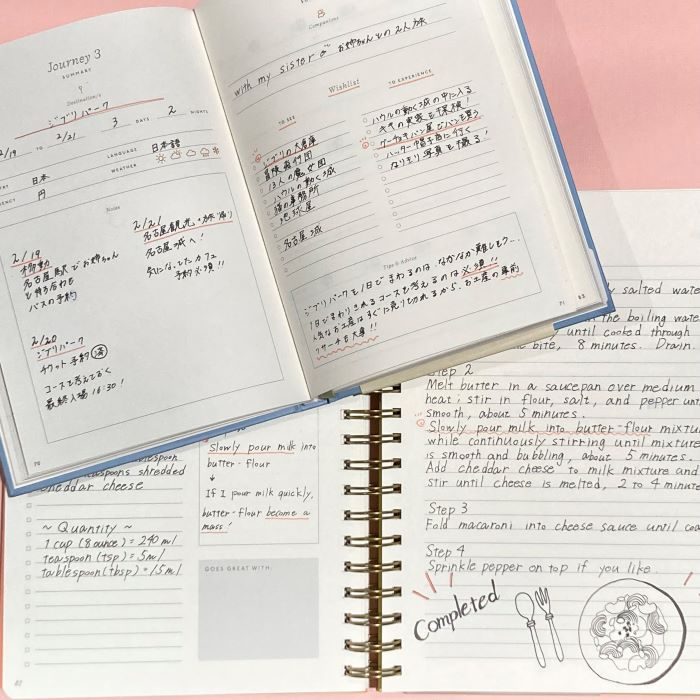 Journey 3
SUMMARY
Destination/s
ジブリパーク
2/19 TO 2/21 3 DAYS 2 NIGHTS
日本 LANGUAGE 日本語
円 WEATHER
Notes
2/19
移動
名古屋駅でお姉ちゃん
と待ち合わせ
バスの予約
2/20
ジブリパーク
チケット予約 済
コースを考えておく
最終入場 16:30!
2/21
名古屋観光・お城
名古屋城へ!
気になってたカフェ
予約必須!!
70
Companions
with my sister お姉ちゃんとの2人旅
Wishlist
TO SEE
ジブリの大倉庫
冒険飛行団
13人の魔女団
ハウルの動く城
猫の事務所
地球屋
名古屋城
TO EXPERIENCE
ハウルの動く城の中に入る
キキの実家を探検!
グーチョキパン屋でパンを買う
ハッター帽子店に行く
なりきり写真を撮る!
Tips & Advice
ジブリパークを1日でまわるのは、なかなか難しそう…
1日でまわりきれるコースを考えるのは必須!!
人気なお土産はすぐに売り切れるから、お土産の事前
リサーチも大事!!
71
teaspoons shredded
cheddar cheese
~ Quantity ~
1 cup (8 ounce) = 240 ml
teaspoon (tsp) = 5 ml
tablespoon (tbsp) = 15 ml
Slowly pour milk into
butter-flour
↓
If I pour milk quickly,
butter-flour become a
mass!
GOES GREAT WITH:
salted water
the boiling water
until cooked through
the bite, 8 minutes. Drain.
Step 2
Melt butter in a saucepan over medium
heat; stir in flour, salt, and pepper until
smooth, about 5 minutes.
Slowly pour milk into butter-flour mixture
while continuously stirring until mixture
is smooth and bubbling, about 5 minutes.
Add cheddar cheese to milk mixture and
stir until cheese is melted, 2 to 4 minutes
Step 3
Fold macaroni into cheese sauce until
Step 4
Sprinkle pepper on top if you like
Completed